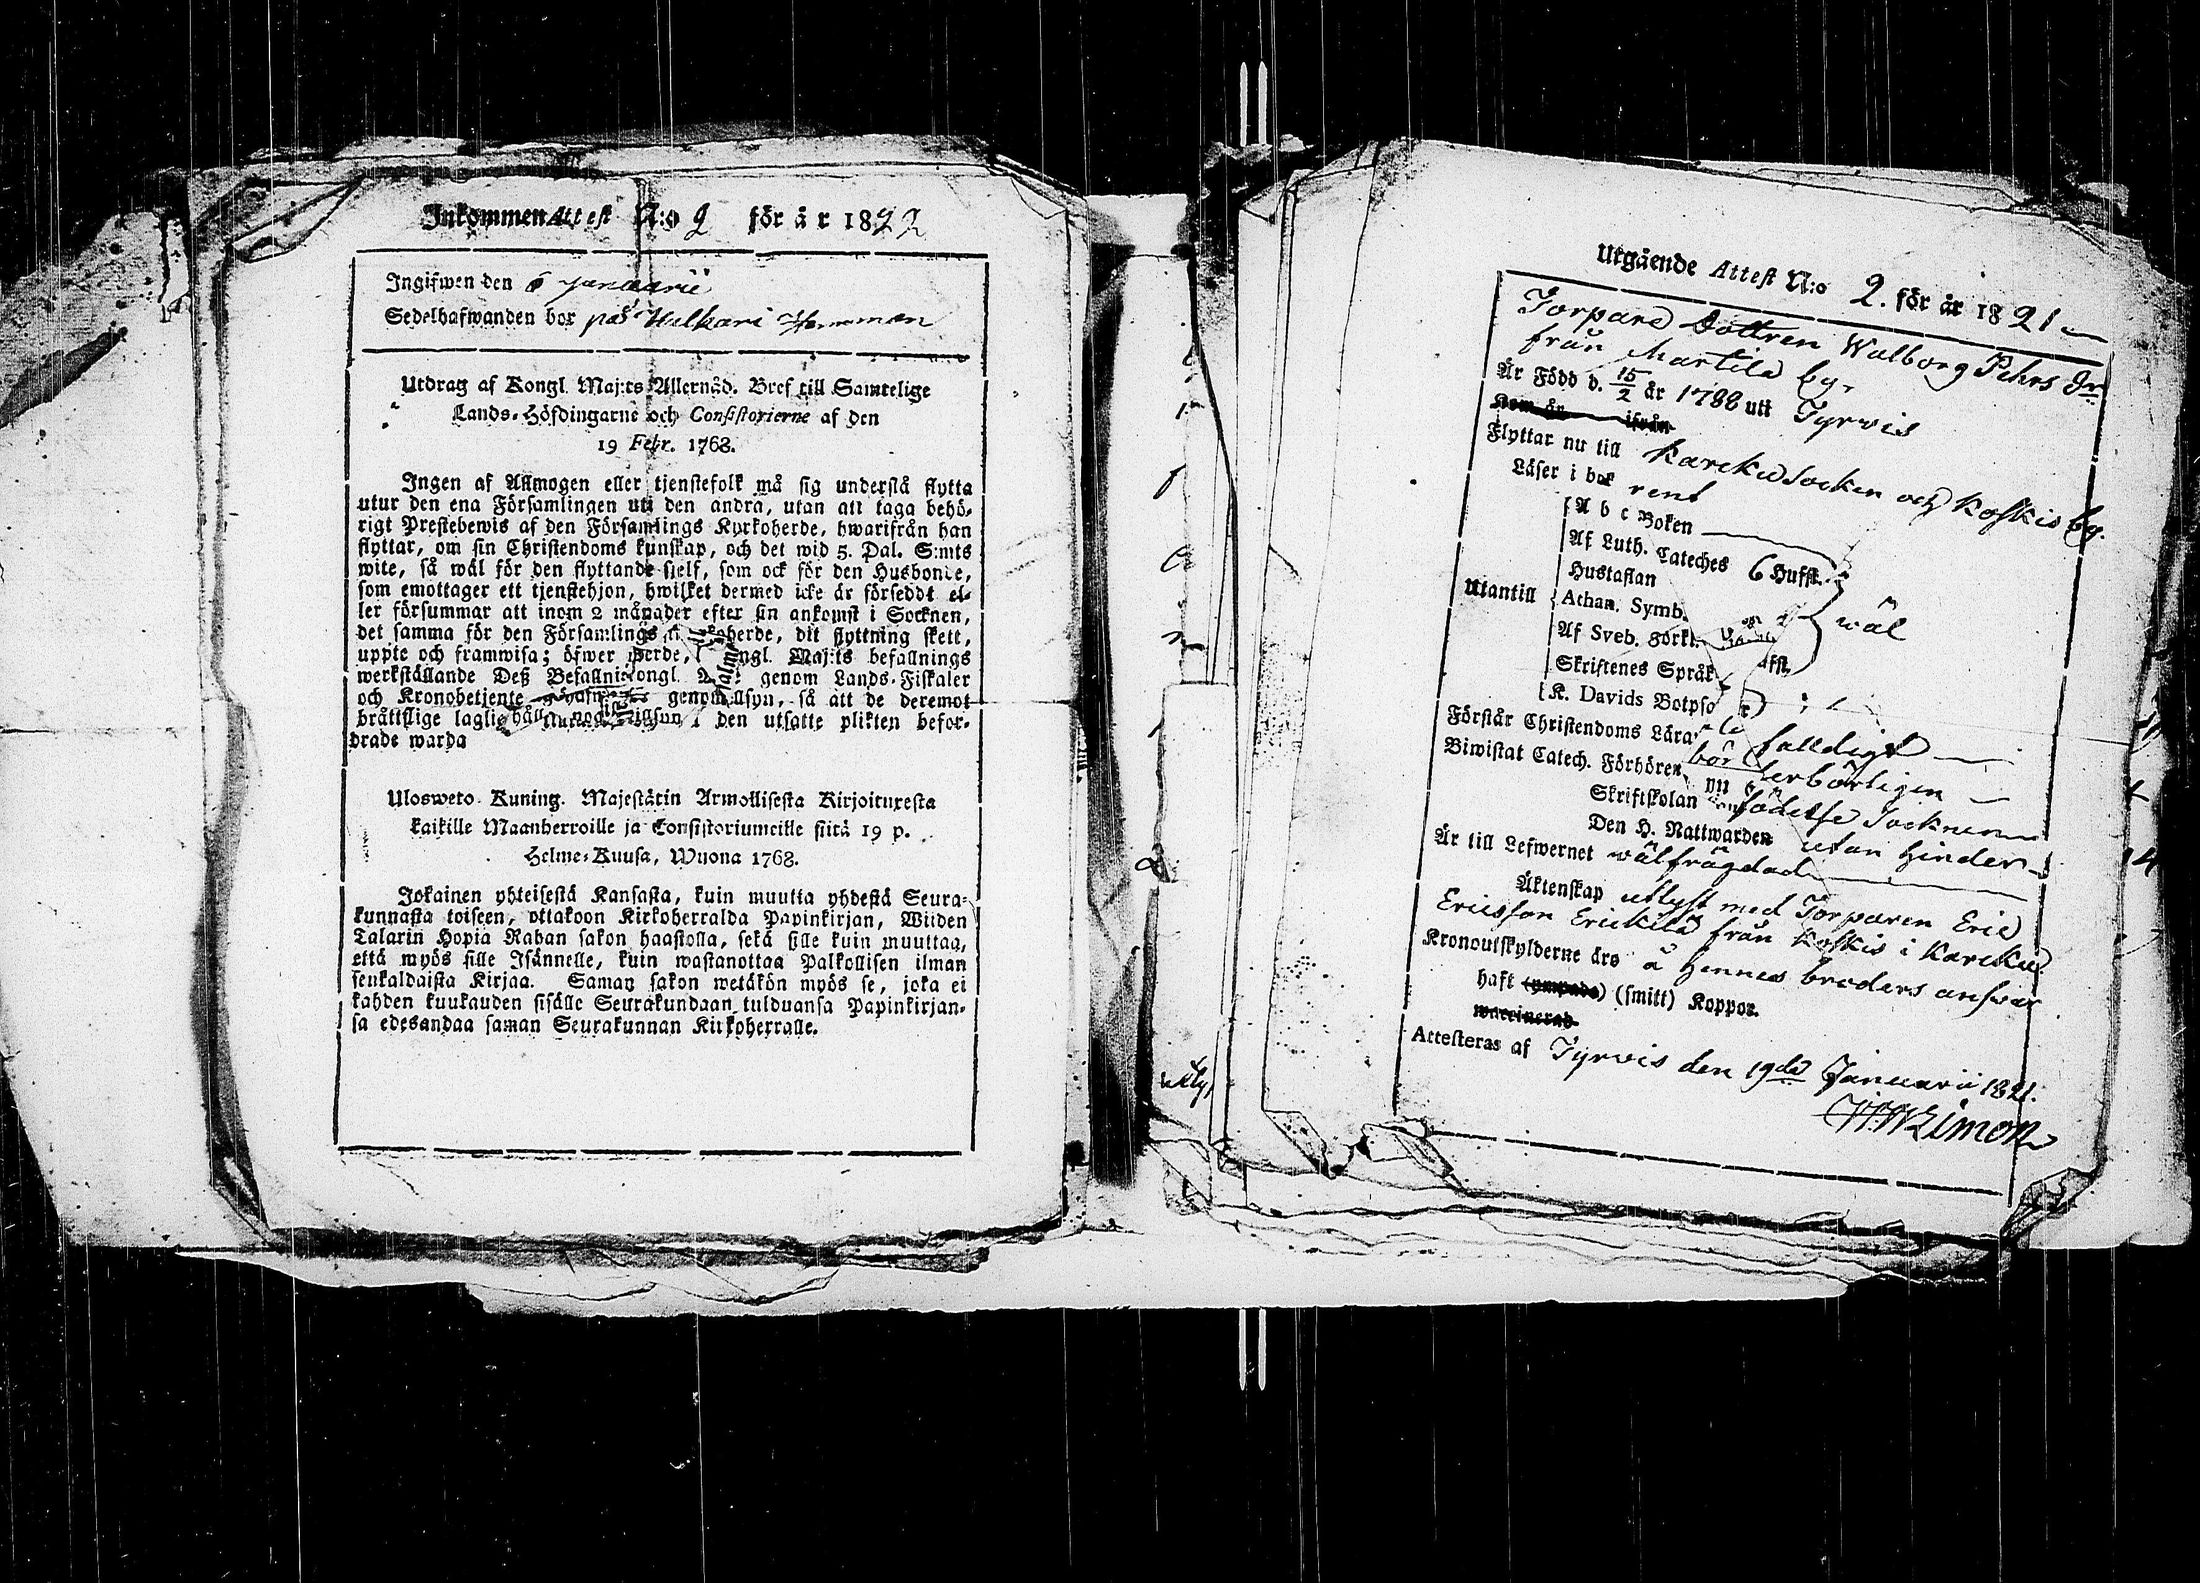 Inkommen Attest N:o 2 för år 1822
Ingifwen den 6 Januarii
Sedelhafwanden bor på Hemman
Utdrag af Kongl. Maj:ts Allernåd. Bref till Samtelige
Lands-Höfdingarne och Consistorierne af den
19 Febr. 1768.
Ingen af Allmogen eller tjenstefolk må sig understå flytta
utur den ena Församlingen uti den andra, utan att taga behö-
rigt Prestebewis af den Församlings Kyrkoherde, hwarifrån han
flyttar, om sin Christendoms kunskap, och det wid 5. Dal. S:mts
wite, så wäl för den flyttande sjelf, som ock för den Husbonde,
som emottager ett tjenstehjon, hwilket dermed icke är förseddt el-
ler försummar att inom 2 månader efter sin ankomst i Socknen,
det samma för den Församlings herde, dit flyttning skett,
uppte och framwisa; öfwer Maj:ts befallnings
werkställande Deß genom Lands-Fiskaler
och Kronobetjente så att de deremot
bråttslige laglig den utsatte plikten befor-
drade warda
Ulosweto Kuning. Majestätin Armollisesta Kirjoituxesta
kaikille Maanherroille ja Consistoriumeille siitä 19 p.
Helme-Kuusa, Wuona 1768.
Jokainen yhteisestä Kansasta, kuin muutta yhdestä Seura-
kunnasta toiseen, ottakoon Kirkoherralda Papinkirjan, Wiiden
Talarin Hopia Rahan sakon haastolla, sekä sille kuin muuttaa,
että myös sille Isännelle, kuin wastanottaa Palkollisen ilman
senkaldaista Kirjaa. Saman sakon wetäkön myös se, joka ei
kahden kuukauden sisälle Seurakundaan tulduansa Papinkirjan-
sa edesandaa saman Seurakunnan Kirkoherralle.
Utgående Attest N:o 2. för år 1821
Torpare Dottren Walborg Pehrs Dr
från Martila by.
Är Född d. 15/2 år 1788 uti Tyrvis
Kom år ifrån
Flyttar nu till Karcku Socken och Koskis by.
Läser i bok rent
Utantill
A b c Boken
Af Luth. Cateches 6 Hufst.
Hustaflan
Athan. Symb.
Af Sveb. Förkl.
wäl
Skriftenes Språk
K. Davids Botpso
Förstår Christendoms Lära falldigt
Biwistat Catech. Förhören
Skriftskolan födelse Socknen
Den H. Nattwarden utan hinder
Är till Lefwernet wälfrägdad
Äktenskap utlyst med Torparen Eric
Ericsson Erickilä från Koskis i Karcku
Kronoutskylderne äro å hennes broders answar
haft (ympade) (smitt) Koppor.
waccinerad
Attesteras af Tyrvis den 19de Januarii 1821.